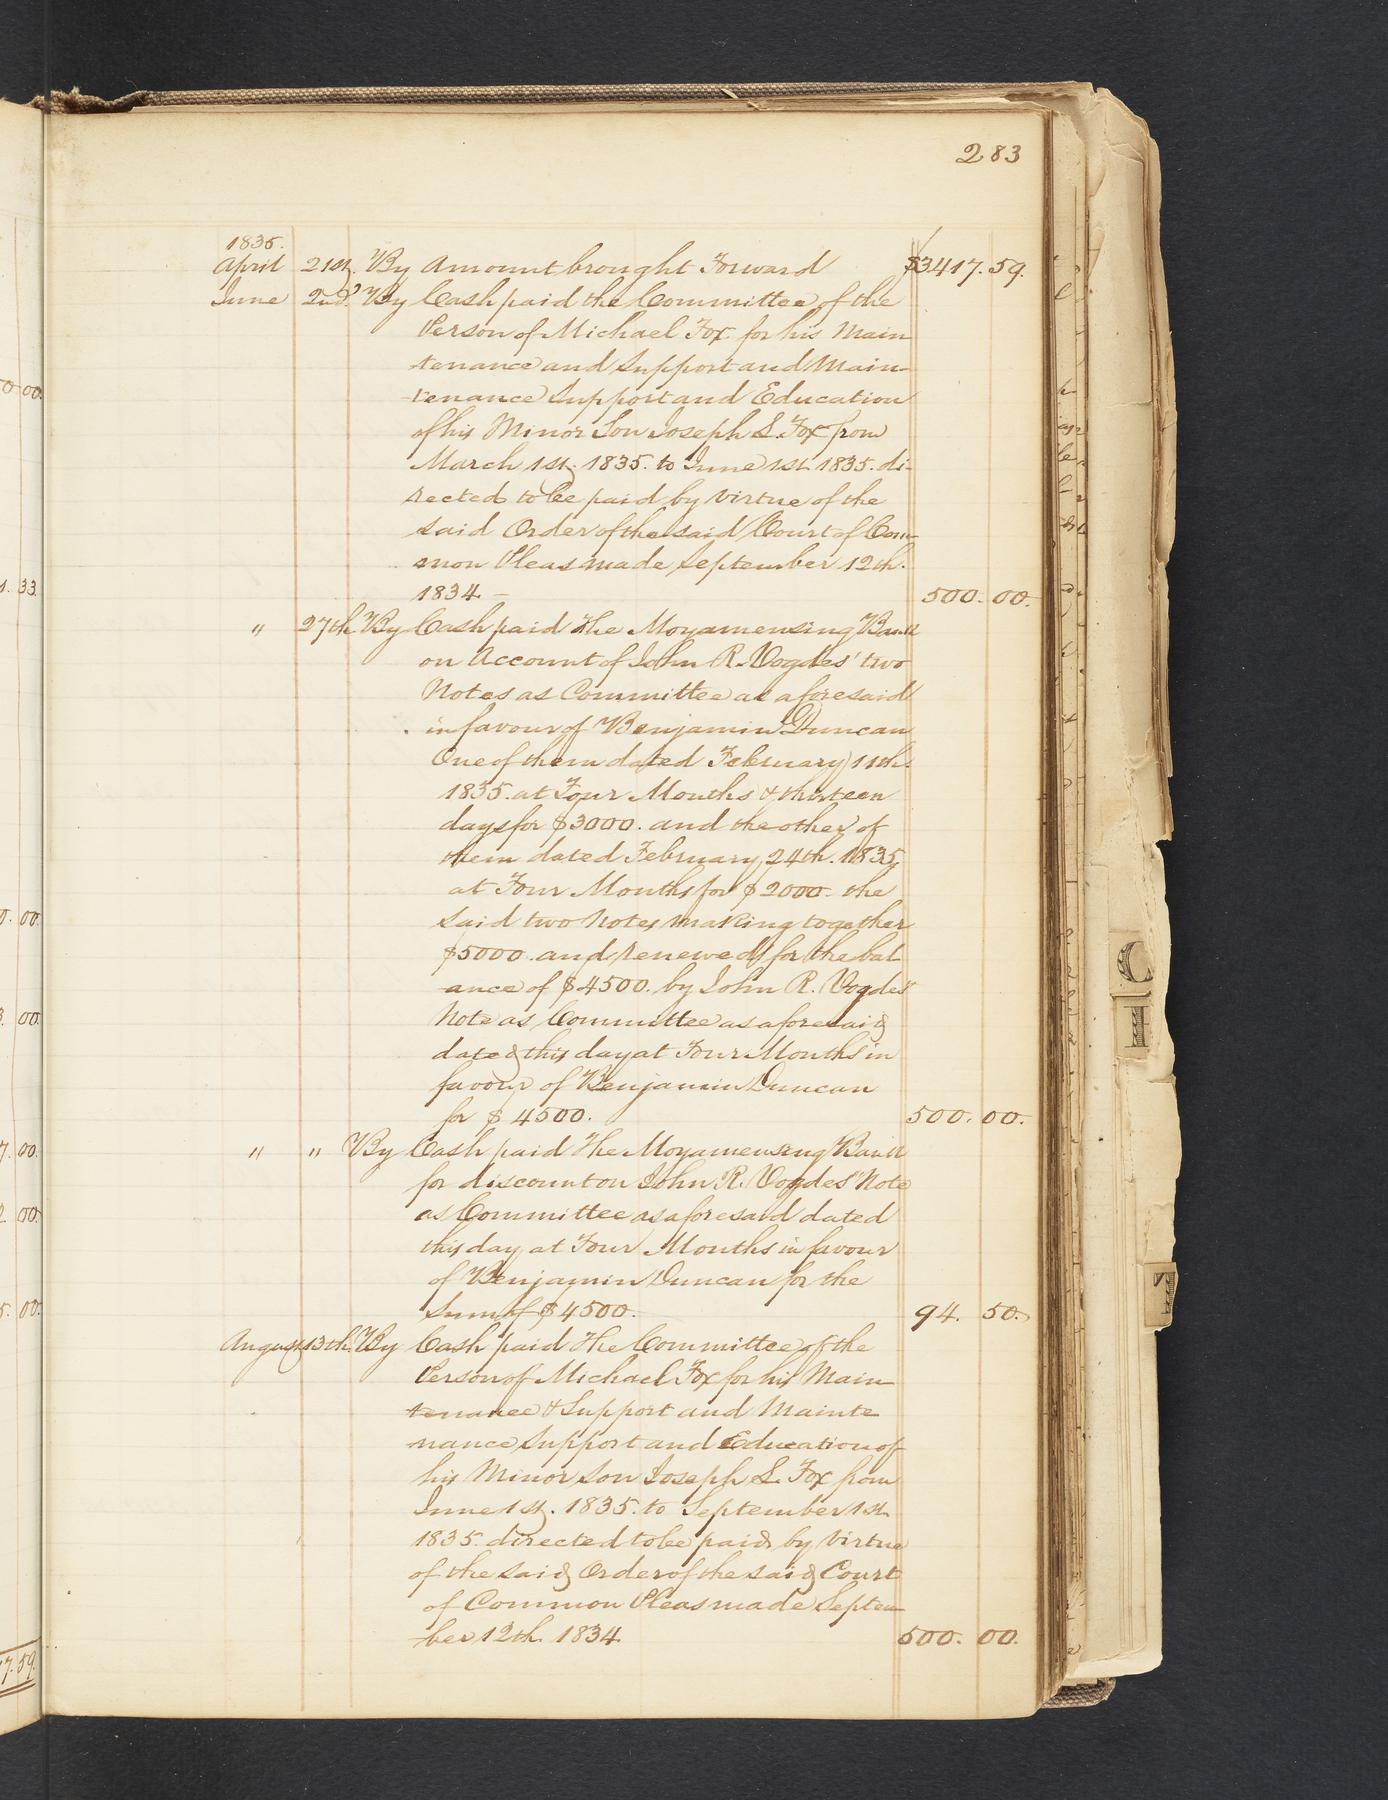 283
1835.
April 21st. By Amount brought Forward $3417.59.
June 2nd. By Cash paid the Committee of the
Person of Michael Fox for his Main
tenance and Support and Main-
tenance Support and Education
of his Minor Son Joseph S. Fox from
March 1st. 1835. to June 1st. 1835. di-
rected to be paid by virtue of the
said Order of the said Court of Com-
mon Pleas made September 12th.
1834 — 500.00.
" 27th By Cash paid the Moyamensing Bank
on Account of John R. Vogdes' two
Notes as Committee as aforesaid
in favour of Benjamin Duncan
One of them dated February 11th.
1835. at Four Months & thirteen
days for $3000. and the other of
them dated February 24th. 1835
at Four Months for $2000. the
said two Notes making together
$5000. and renewed for the bal
ance of $4500. by John R. Vogdes'
Note as Committee as aforesaid
dated this day at Four Months in
favour of Benjamin Duncan
for $4500. 500.00.
" " By Cash paid The Moyamensing Bank
for discount on John R. Vogdes' Note
as Committee as aforesaid dated
this day at Four Months in favour
of Benjamin Duncan for the
Sum of $4500. 94.50.
August 13th. By Cash paid The Committee of the
Person of Michael Fox for his Main
tenance & Support and Mainte
nance Support and Education of
his Minor Son Joseph S. Fox from
June 1st. 1835. to September 1st.
1835. directed to be paid by virtue
of the said Order of the said Court
of Common Pleas made Septem
ber 12th. 1834 500.00.